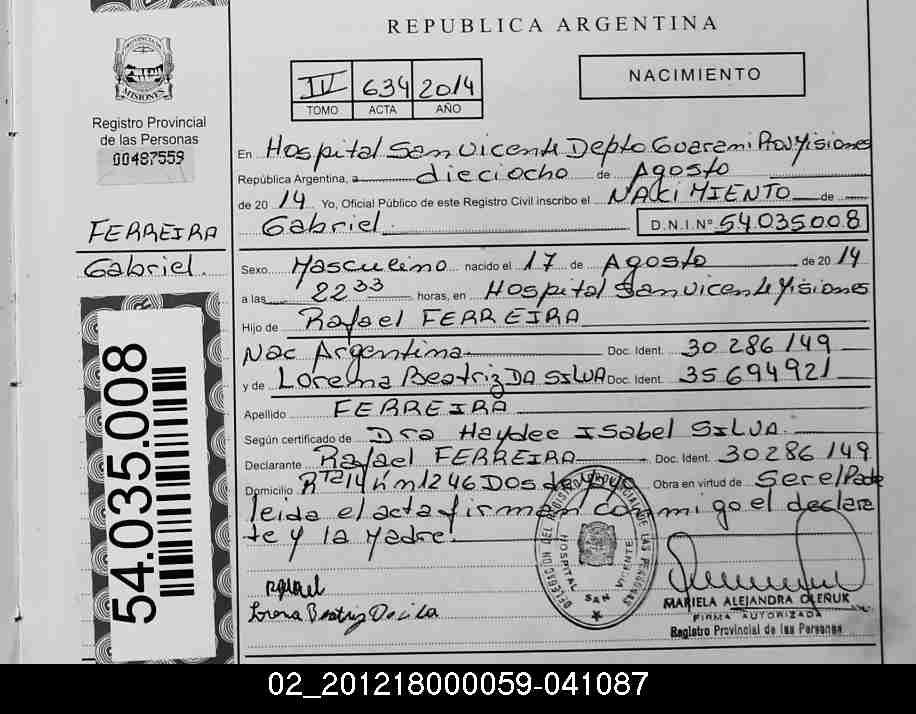 REPUBLICA ARGENTINA
PROVINCIA DE MISIONES
Registro Provincial
de las Personas
00487559
IV 634 2014
TOMO ACTA AÑO
NACIMIENTO
En Hospital San Vicente Depto Guarani Prov Misiones
República Argentina, a dieciocho de Agosto
de 2014 Yo, Oficial Público de este Registro Civil inscribo el NACIMIENTO de
Gabriel. D.N.I.Nº 54.035008
FERREIRA
Gabriel.
Sexo Masculino nacido el 17 de Agosto de 2014
a las 22 33 horas, en Hospital San Vicente Misiones
Hijo de Rafael FERREIRA
Nac Argentina Doc. Ident. 30 286 149
y de Lorena Beatriz DA SILVA Doc. Ident. 35 694 921
Apellido FERREIRA
Según certificado de Dra Haydee ISabel SILVA.
Declarante Rafael FERREIRA Doc. Ident. 30286 149
Domicilio Rta 14 Km 1246 Dos de Obra en virtud de Ser el Padre
leida el acta firman conmigo el declara
te y la Madre.
54.035.008
DELEGACION DEL REGISTRO PROVINCIAL DE LAS PERSONAS
HOSPITAL SAN VICENTE
Rafael
Lorena Beatriz
MARIELA ALEJANDRA OLEÑUK
FIRMA AUTORIZADA
Registro Provincial de las Personas
02_201218000059-041087